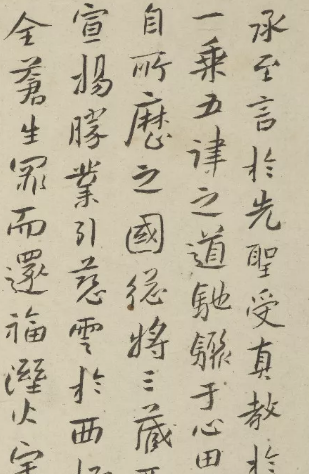 承至言於先聖受真教於
一乘五律之道馳驟于心田
自所歷之國總將三藏
宣揚勝業引慈雲於西
全蒼生罪而還福溼火